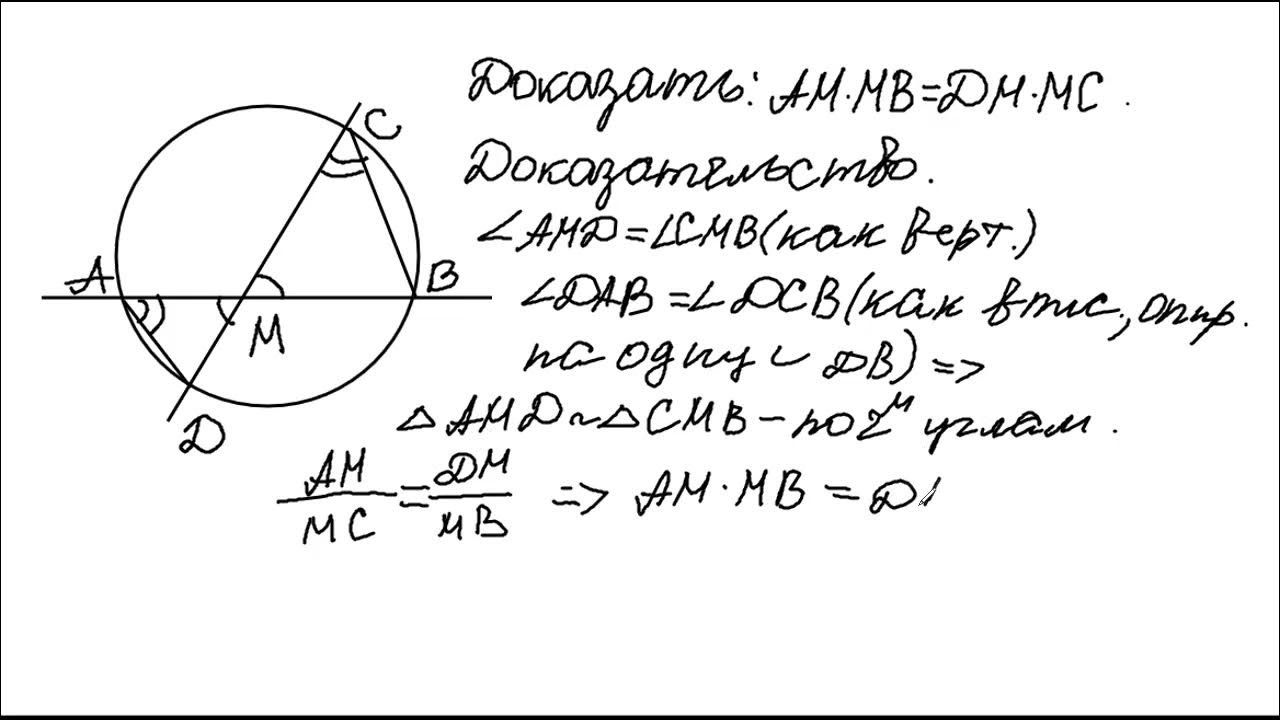 Доказать: AM·MB=DM·MC.
Доказательство.
∠AMD=∠CMB(как верт.)
∠DAB=∠DCB(как впис., опир.
на одну ◡ DB) =>
△AMD~△CMB - по 2ᵐ углам.
AM/MC = DM/MB => AM·MB = D
C
A
B
M
D